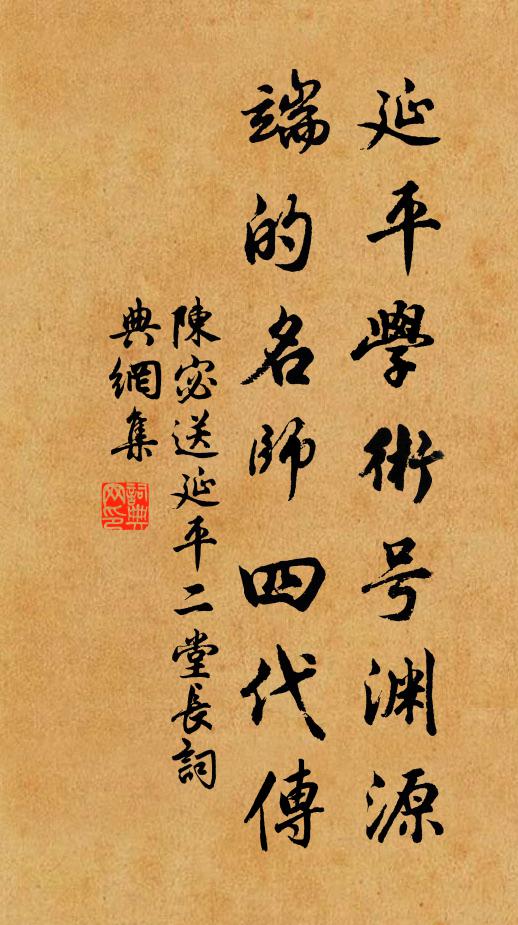 延平學術号渊源
端的名師四代傳
陳宓送延平二堂長詞
典網集
詞典
网印